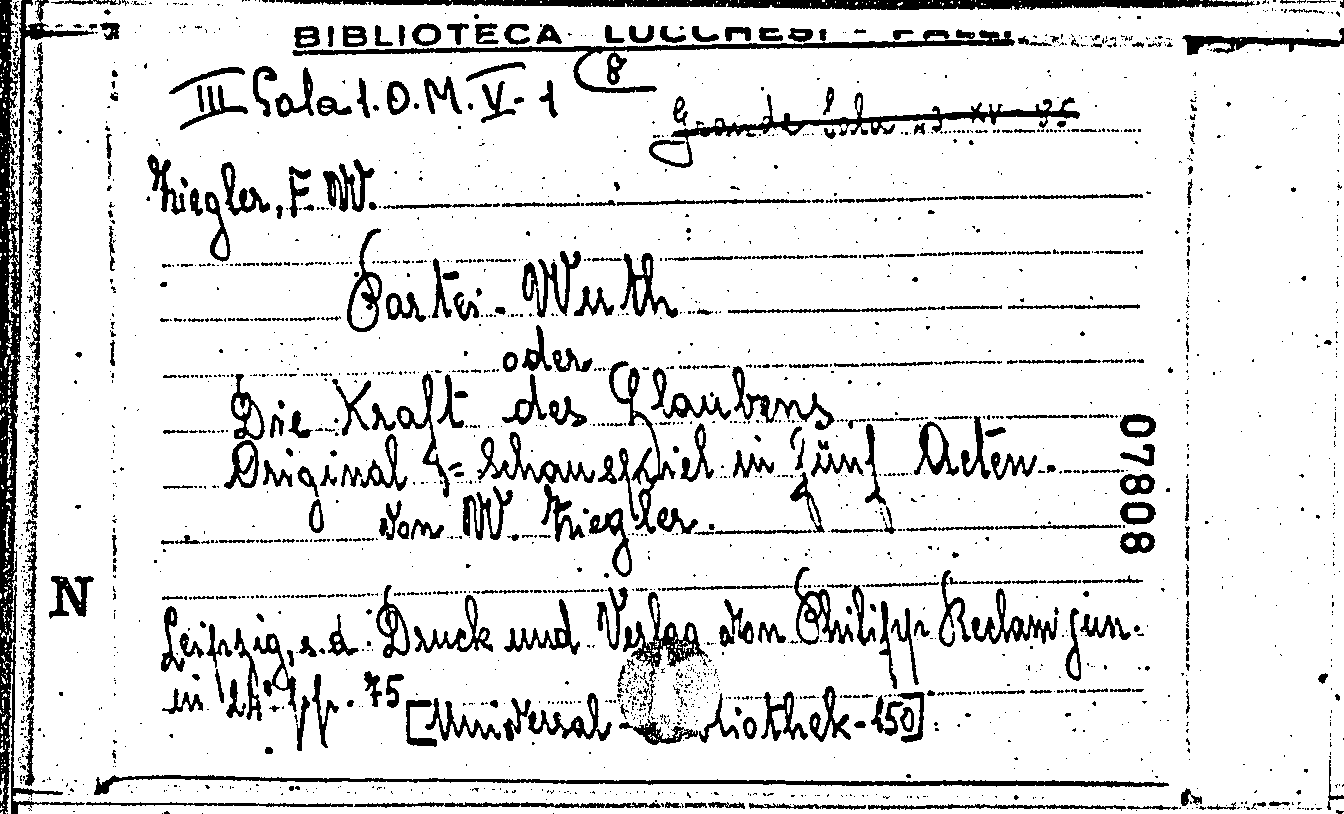 BIBLIOTECA LUCCHESI - PALLI
III Sala 1. O. M. V - 1 (8
Grande Sala 23 XV 35
Ziegler, F. W.
Partei - Wuth
oder
Die Kraft des Glaubens
Original - Schauspiel in fünf Acten.
von W. Ziegler.
07808
N
Leipzig, s. d. Druck und Verlag von Philipp Reclam jun.
in 24° pp. 75
[Universal - Bibliothek - 150]